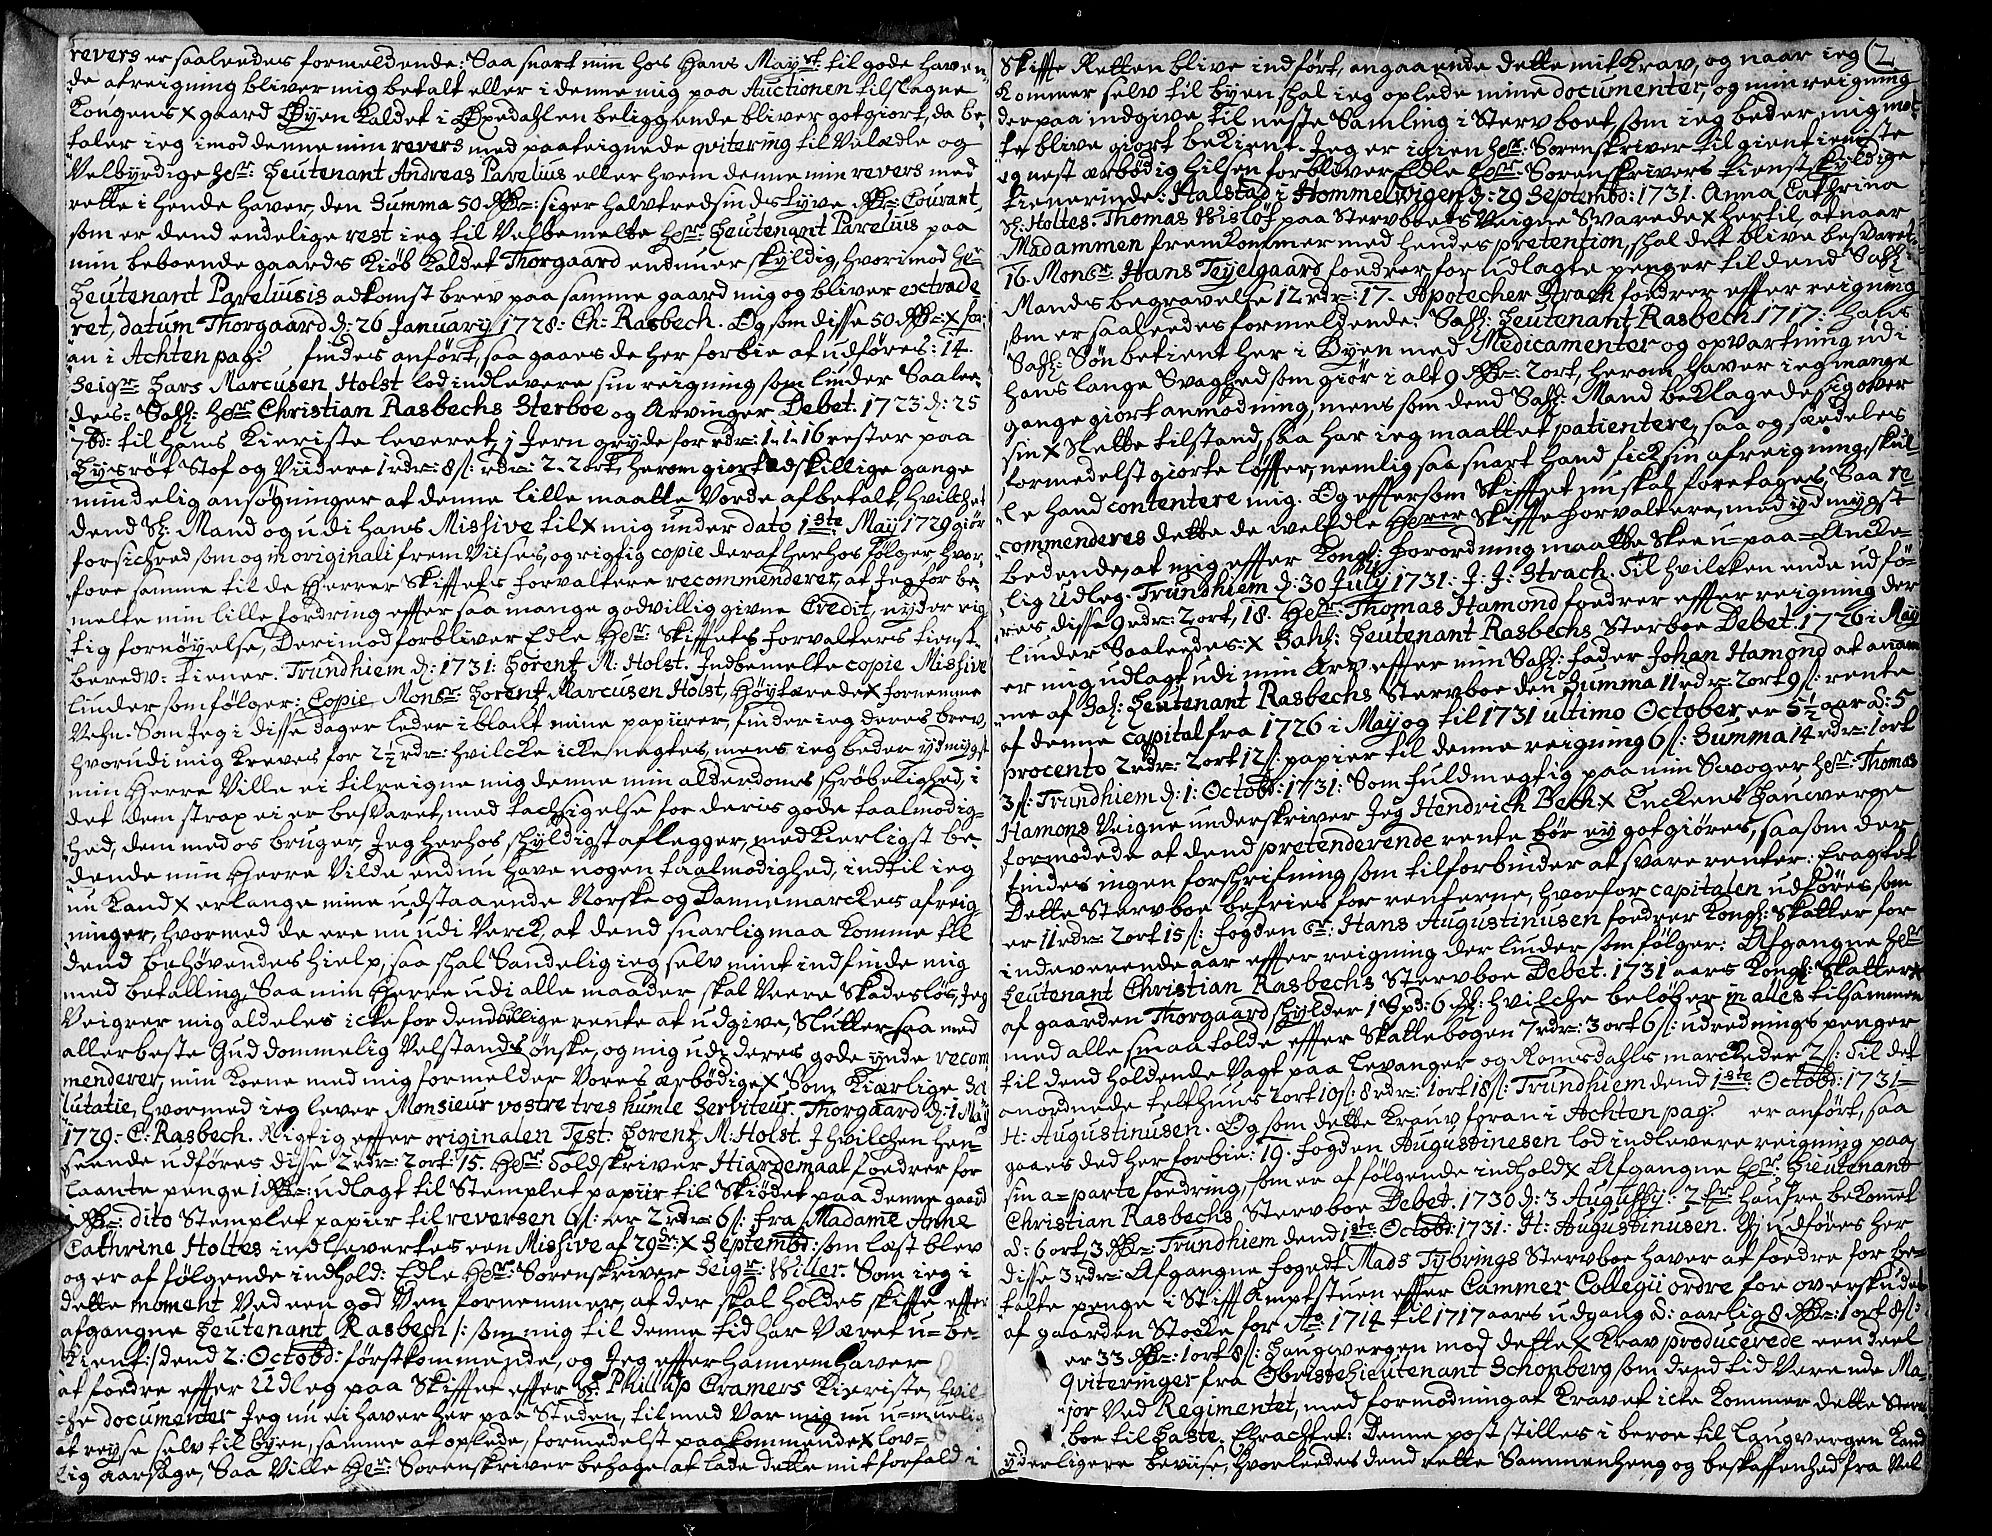 revers er saaleedes formeldende: Saa snart min hos Hans Mayst: til gode haven-
de afreigning bliver mig betalt eller i denne mig paa Auctionen tilslagne
Kongens x gaard Øyen kaldet i Øxedahlen beliggende bliver gotgiort, da be-
taler ieg imod denne min revers med paateignede qvitering til Velædle og
Velbyrdige Hr: Leutenant Andreas Parelius eller hvem denne min revers med
rette i hende haver, den Summa 50 Rdr: siger halvtredsindstyve Rdr: Courant,
som er dend endelige rest ieg til Velbemelte Hr: Leutenant Parelius paa
min beboende gaards Kiøb kaldet Thorgaard endnu er skyldig, hvorimod Hr
Leutenant Pareliusis adkomst brev paa samme gaard mig og bliver extrade
ret, datum Thorgaard d: 26 January 1728: Ch: Rasbech. Og som disse 50 Rdr: x for-
an i Achten pag: findes anført, saa gaaes de her forbie at udføres: 14.
Seigr Lars Marcusen Holst lod indlevere sin reigning som linder Saalee-
des: Sahl: Hr Christian Rasbechs Sterboe og Arvinger Debet. 1723 d: 25
7bd: til hans Kieriste leveret 1 Jern gryde for rdr: 1-1-16 rester paa
Lysrøt Stof og Viidere 1 rdr: 8 s: rdr: 2-2 ort, herom giort adskillige gange
mindelig ansøgninger at denne lille maatte Vorde afbetalt, hvilchet
dend Sl: Mand og udi hans Missive til x mig under dato 1ste May 1729 giør
forsichred som og in originali frem Viises, og rigtig copie deraf herhos følger, hvor-
fore samme til de Herrer Skifftets forvaltere recommenderer, at Jeg for be-
melte min lille fordring effter saa mange godvillig givne Credit, nyder rig-
tig fornøyelse, Derimod forbliver Edle Hr: Skifftets forvalters tienst-
beredv: tiener. Trundhiem d: 1731: Lorentz M: Holst. Indbemelte copie Missive
linder som følger: Copie Monsr Lorentz Marcusen Holst, Høytærede x fornemme
Vehn. Som Jeg i disse dager leder i blant mine papiirer, finder ieg deres brev,
hvorudi mig kreves for 2½ rdr: hvilcke icke negtes, mens ieg beder ydmygst
min Herre Ville ei tilreigne mig denne min alderdoms skrøbelighed, i
det dem strax ei er besvaret, med tachsigelse for deris gode taalmodig-
hed, dem med os bruger, Jeg herhos skyldigst aflegger, med kierligst be-
dende min Herre Vilde endnu have nogen taalmodighed, indtil ieg
nu kand x erlange mine udstaaende Norske og Dannemarckes afreig-
ninger, hvormed de ere nu udi Verck, at dend snarlig maa komme til
dend behøvendes hielp, saa skal Sandelig ieg selv mint indfinde mig
med betalling, Saa min Herre udi alle maader skal Veere Skadesløs, Jeg
Veigrer mig aldeles icke for dend billige rente at udgive, Slutter saa med
allerbeste Gud dommelig Velstands ønske, og mig udi deres gode ynde recom-
menderer, min Kone med mig formelder Vores ærbødige x Som Kiærlige Sa-
lutatie, hvormed ieg lever Monsieur vostre tres humle Serviteur. Thorgaard d: 1 May
1729: C: Rasbech. Rigtig effter originalen Test: Lorentz M: Holst. I hvilchen hen-
seende udføres disse 2 rdr: 2 ort: 15. Hr Toldskriver Hiardemaal foedrer for
laante penge 1 Rdr: udlagt til Stemplet papiir til Skiødet paa denne gaard
1 Rdr: dito Stemplet papiir til reversen 6 s: er 2 rdr: 6 s: fra Madame Anne
Cathrine Holtes indleevertes een Missive af 29de: x Septembr: som læst blev
og er af følgende indhold: Edle Hr: Sorenskriver Seigr: Willer. Som ieg i
dette moment Ved een god Ven fornemmer, at der skal holdes skifte effter
afgangne Leutenant Rasbech /: som mig til denne tid har Været u-be-
kient :/ dend 2: Octobd: førstkommende, og Jeg effter hannem haver
at foedre effter Udleg paa Skifftet effter Sl: Phillip Cramers Kieriste, hvil-
che documenter Jeg nu ei haver her paa Steden, til med Var mig nu u-muelig
at reyse selv til byen, samme at oplede, formedelst paakommende x lov-
lig aarsage, Saa Ville Hr: Sorenskriver behage at lade dette mit forfald i
2
Skiffte Retten blive indført, angaaende dette mit Krav, og naar ieg
kommer selv til byen skal ieg oplede mine documenter, og min reigning
derpaa indgive til neste Samling i Stervboet, som ieg beder, mig mot-
te blive giort bekient. Jeg er igien Hr: Sorenskriver til gientieniste
og nest ærbødig hilsen forbliver Edle Hr: Sorenskrivers tienstskyldige
tienerinde: Halstad i Hommelwigen d: 29 Septembr: 1731. Anna Cathrina
Sl: Holtes. Thomas Wisløf paa Stervboets Veigne Svarede x hertil at naar
Madammen fremkommer med hendes pretention, skal det blive besvaret.
16. Monsr: Hans Teyelgaard foedrer for udlagte penger til dend Sahl:
Mands begravelse 12 rdr: 17. Apotecher Strach foedrer effter reigning
som er saaleedes formeldende: Sahl: Leutenant Rasbech 1717: Hans
Sahl: Søn betient her i Byen med Medicamenter og opvartning udi
hans lange Svaghed som giør i alt 9 Rdr: 2 ort, herom haver ieg mange
gange giort anmodning, mens som dend Sahl: Mand beklagede sig over
sin x Slette tilstand, saa har ieg maattet patientere, saa og særdeles
formedelst giorte løffter, nemlig saa snart hand fick sin afreigning, skul-
le hand contentere mig. Og efftersom Skifftet nu skal foretages, Saa re-
commenderes dette de welEdle Herrer Skiffte Forvaltere, med ydmygst
bedende, at mig effter Kongl: Forordning maatte skee u-paa-Ancke-
lig Udleg. Trundhiem d: 30 July 1731: J: J: Strach. Til hvilcken ende udfø-
res disse 9 rdr: 2 ort, 18. Hr: Thomas Hamond foedrer effter reigning der
linder Saaleedes: x Sahl: Leutenant Rasbechs Sterboe Debet. 1726 i May
er mig udlagt udi min Arv effter min Sahl: fader Johan Hamond at annam-
me af Sal: Leutenant Rasbechs Stervboe den Summa 11 rdr: 2 ort 9 s: rente
af denne capital fra 1726 i May og til 1731 ultimo October, er 5½ aar â: 5
procento 2 rdr: 2 ort 12 s: papier til denne reigning 6 s: Summa 14 rdr: 1 ort
3 s: Trundhiem d: 1: Octobd: 1731: Som fuldmegtig paa min Swoger Hr: Thomas
Hamons Veigne underskriver Jeg Hendrich Bech x Enckens Laugverge
formodede at dend pretenderende rente bør ey gotgiøres, saasom der
findes ingen forskrifning som tilforbinder at svare renter: Eragtet
Dette Stervboe befries for renterne, hvorfor capitalen udføres som
er 11 rdr: 2 ort 15 s: fogden Sr: Hans Augustinusen foedrer Kongl: Skatter for
indeverende aar effter reigning der linder som følger: Afgangne Hr
Leutenant Christian Rasbechs Stervboe Debet. 1731 aars Kongl: Skatter x
af gaarden Thorgaard skylder 1 Spd: 6 ml: hvilche beløber in alles tilsammen
med alle smaa tolde effter Skattebogen 7 rdr: 3 ort 6 s: udrednings penger
til dend holdende Vagt paa Levanger og Romsdahls marckeder 2 s: Til det
anordnede telthuus 2 ort 10 s: 8 rdr: 1 ort 18 s: Trundhiem dend 1ste Octobd: 1731-
H: Augustinusen. Og som dette Krauv foran i Achten pag: er anført, saa
gaaes ded her forbie: 19. fogden Augustinesen lod indlevere reigning paa
sin a-parte foedring, som er af følgende indhold x Afgangne Hr: Lieutenant
Christian Rasbechs Stervboe Debet. 1730 d: 3 Augusty: 2 tr haufre bekomet
â: 6 ort, 3 Rdr: Trundhiem dend 1ste Octobd: 1731: H: Augustinusen. Vi udføres her
disse 3 rdr: Afgangne fogedt Mads Tybrings Stervboe haver at foedre for be-
talte penge i Stifft Amptstuen effter Cammer Collegii ordre for overskudet
af gaarden Stocke for Ao 1714 til 1717 aars udgang â: aarlig 8 Rdr: 1 ort 8 s:
er 33 Rdr: 1 ort 8 s: Laugvergen mod dette x Krav producerede een deel
qviteringer fra Obriste Lieutenant Schonberg som dend tid Verende Ma-
jor Ved Regimentet, med formodning at Kravet icke kommer dette Sterv-
boe til Laste. Ehrachtet: Denne post stilles i beroe til Laugvergen kand
yderligere beviise, hvorleedes dend rette Sammenheng og beskaffenhed fra Vel